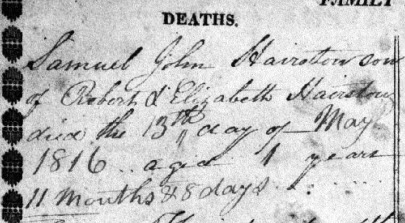 FAMILY
DEATHS.
Samuel John Hairston son
of Robert & Elizabeth Hairston
died the 13th day of May
1816 .. aged 1 years
11 months & 8 days